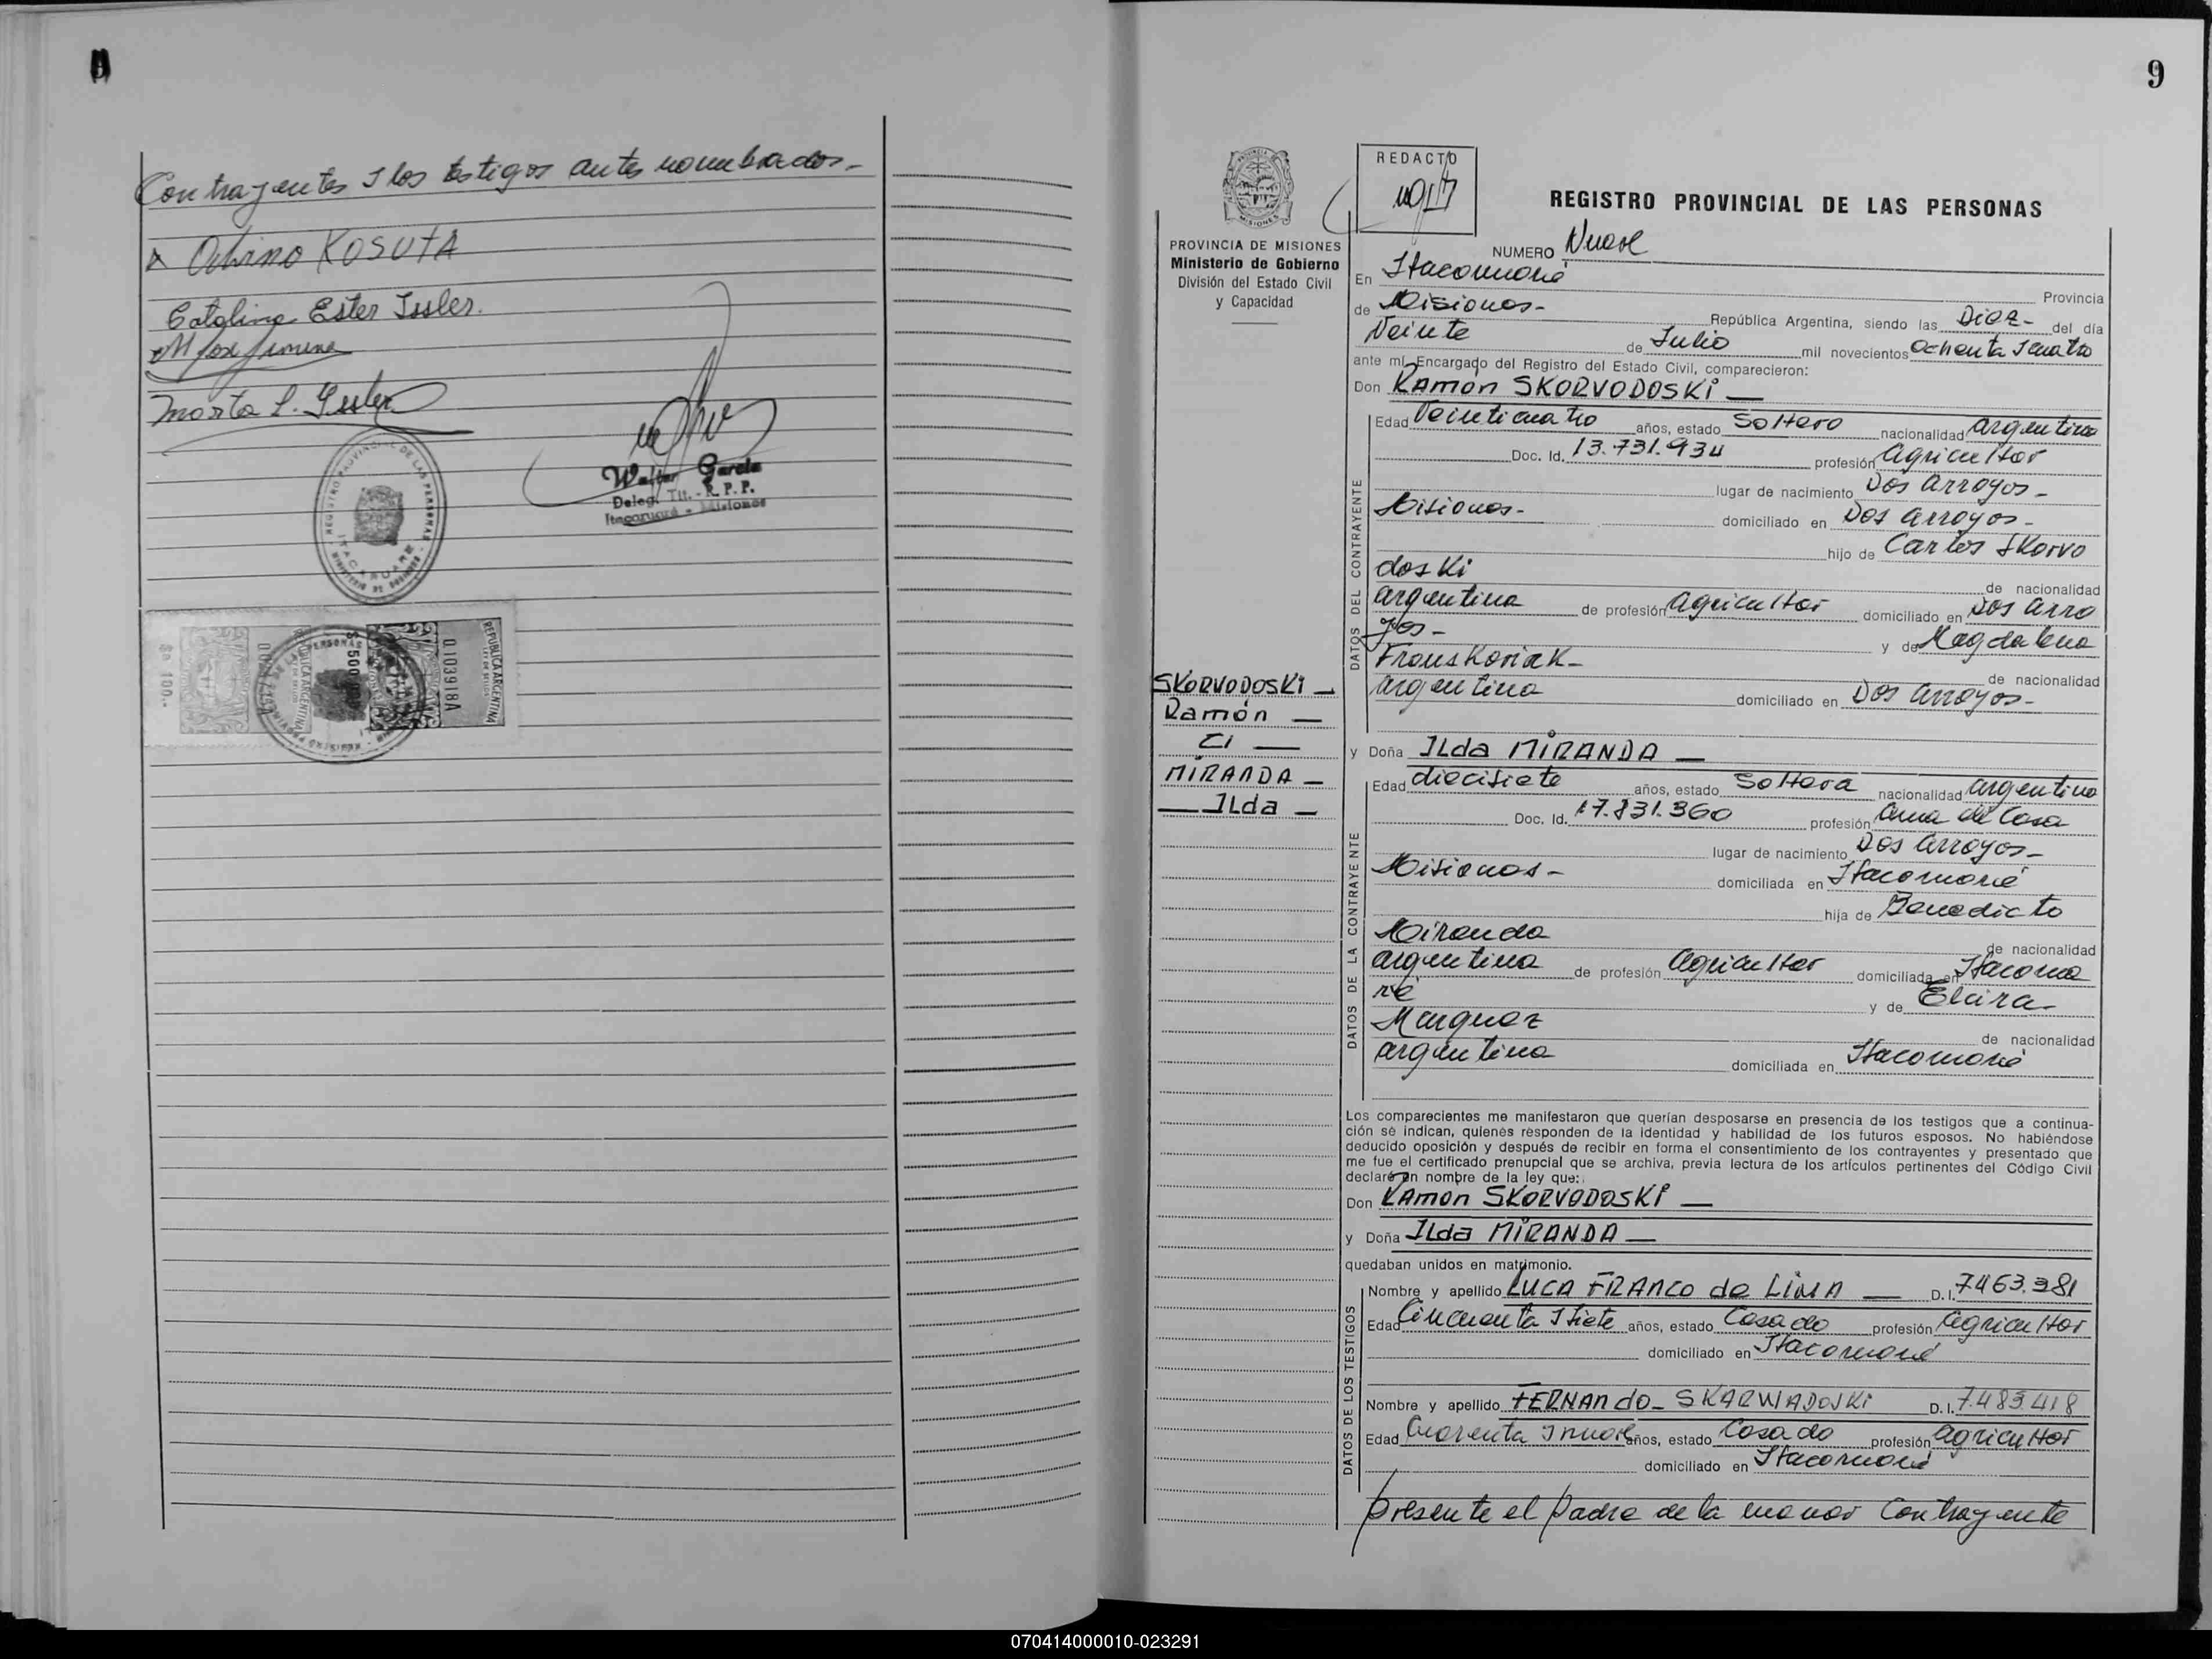 Contrayentes y los testigos antes nombrados-
KOSUTA
Catalina Ester Issler.
Marta L. Issler
REGISTRO PROVINCIAL DE LAS PERSONAS
ITACARUARE
Walter García
Deleg. Tit. - R. P. P.
Itacaruaré - Misiones
$a 100.-
REPUBLICA ARGENTINA
0.103918A
9
PROVINCIA DE MISIONES
Ministerio de Gobierno
División del Estado Civil
y Capacidad
SKORVODOSKI -
Ramón —
CI —
MIRANDA -
— ILda -
REDACTO
REGISTRO PROVINCIAL DE LAS PERSONAS
NUMERO Nueve
En Itacaruaré
Provincia
de Misiones- República Argentina, siendo las Diez- del día
Veinte de Julio mil novecientos Ochenta y cuatro
ante mí, Encargado del Registro del Estado Civil, comparecieron:
Don Ramón SKORVODOSKI —
DATOS DEL CONTRAYENTE
Edad Veinticuatro años, estado Soltero nacionalidad argentino
Doc. Id. 13.731.934 profesión agricultor
lugar de nacimiento Dos Arroyos-
Misiones- domiciliado en Dos Arroyos-
hijo de Carlos Skorvo
doski de nacionalidad
argentina de profesión agricultor domiciliado en Dos Arro
yos- y de Magdalena
de nacionalidad
argentina domiciliado en Dos Arroyos-
y Doña ILda MIRANDA —
DATOS DE LA CONTRAYENTE
Edad diecisiete años, estado Soltera nacionalidad argentina
Doc. Id. 17.831.360 profesión Ama de Casa
lugar de nacimiento Dos Arroyos-
Misiones- domiciliada en Itacaruaré
hija de Benedicto
Miranda de nacionalidad
argentina de profesión agricultor domiciliada en Itacarua
ré y de Elvira
Marquez de nacionalidad
argentina domiciliada en Itacaruaré
Los comparecientes me manifestaron que querían desposarse en presencia de los testigos que a continua-
ción se indican, quienes responden de la identidad y habilidad de los futuros esposos. No habiéndose
deducido oposición y después de recibir en forma el consentimiento de los contrayentes y presentado que
me fue el certificado prenupcial que se archiva, previa lectura de los artículos pertinentes del Código Civil
declaré en nombre de la ley que:
Don Ramon SKORVODOSKI —
y Doña ILda MIRANDA —
quedaban unidos en matrimonio.
DATOS DE LOS TESTIGOS
Nombre y apellido LUCA FRANCO de LIMA — D. I. 7463.381
Edad Cincuenta y siete años, estado Casado profesión agricultor
domiciliado en Itacaruaré
Nombre y apellido FERNANdo- SKARWADOSKI D. I. 7.483.418
Edad Cuarenta y nueve años, estado Casado profesión agricultor
domiciliado en Itacaruaré
presente el padre de la menor Contrayente
070414000010-023291